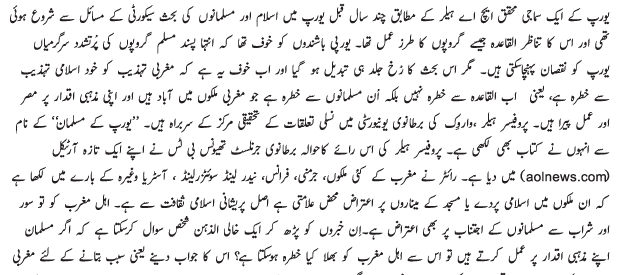 یورپ کے ایک سماجی محقق ایچ اے ہیلر کے مطابق چند سال قبل یورپ میں اسلام اور مسلمانوں کی بحث سیکورٹی کے مسائل سے شروع ہوئی
تھی اور اس کا تناظر القاعدہ جیسے گروپوں کا طرز عمل تھا۔ یورپی باشندوں کو خوف تھا کہ انتہا پسند مسلم گروپوں کی پُرتشدد سرگرمیاں
یورپ کو نقصان پہنچاسکتی ہیں۔ مگر اس بحث کا رُخ جلد ہی تبدیل ہو گیا اور اب خوف یہ ہے کہ مغربی تہذیب کو خود اسلامی تہذیب
سے خطرہ ہے، یعنی اب القاعدہ سے خطرہ نہیں بلکہ اُن مسلمانوں سے خطرہ ہے جو مغربی ملکوں میں آباد ہیں اور اپنی مذہبی اقدار پر مصر
اور عمل پیرا ہیں۔ پروفیسر ہیلر ،واروِک کی برطانوی یونیورسٹی میں نسلی تعلقات کے تحقیقی مرکز کے سربراہ ہیں۔ ’’یورپ کے مسلمان‘‘ کے نام
سے انہوں نے کتاب بھی لکھی ہے۔ پروفیسر ہیلر کی اس رائے کاحوالہ برطانوی جرنلسٹ تھیونس بی ٹس نے اپنے ایک تازہ آرٹیکل
(aolnews.com) میں دیا ہے۔ رائٹر نے مغرب کے کئی ملکوں، جرمنی، فرانس، نیدر لینڈ سوئٹزرلینڈ ، آسٹریا وغیرہ کے بارے میں لکھا ہے
کہ ان ملکوں میں اسلامی پردے یا مسجد کے میناروں پر اعتراض محض علامتی ہے اصل پریشانی اسلامی ثقافت سے ہے۔ اہل مغرب کو تو سور
اور شراب سے مسلمانوں کے اجتناب پر بھی اعتراض ہے۔اِن خبروں کو پڑھ کر ایک خالی الذہن شخص سوال کرسکتا ہے کہ اگر مسلمان
اپنے مذہبی اقدار پر عمل کرتے ہیں تو اس سے اہل مغرب کو بھلا کیا خطرہ ہوسکتا ہے؟ اس کا جواب دینے یعنی سبب بتانے کے لئے مغربی